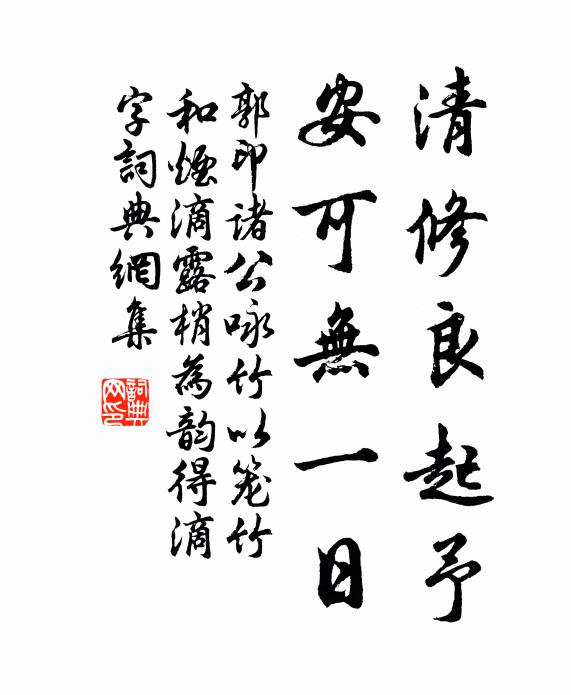 清修良起予
安可無一日
郭印諸公咏竹以笼竹
和煙滴露梢為韵得滴
字詞典網集
詞典网印